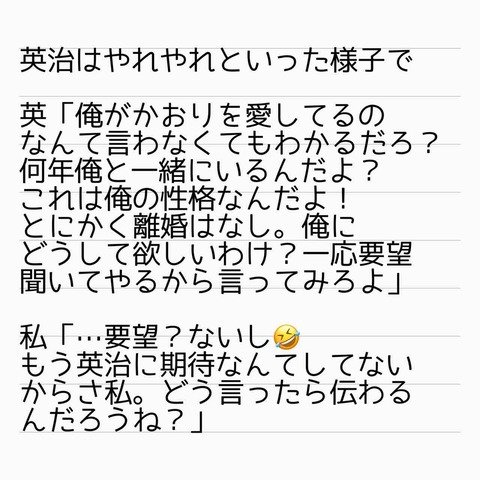 英治はやれやれといった様子で
英「俺がかおりを愛してるの
なんて言わなくてもわかるだろ？
何年俺と一緒にいるんだよ？
これは俺の性格なんだよ！
とにかく離婚はなし。俺に
どうして欲しいわけ？一応要望
聞いてやるから言ってみろよ」
私「…要望？ないし🤣
もう英治に期待なんてしてない
からさ私。どう言ったら伝わる
んだろうね？」